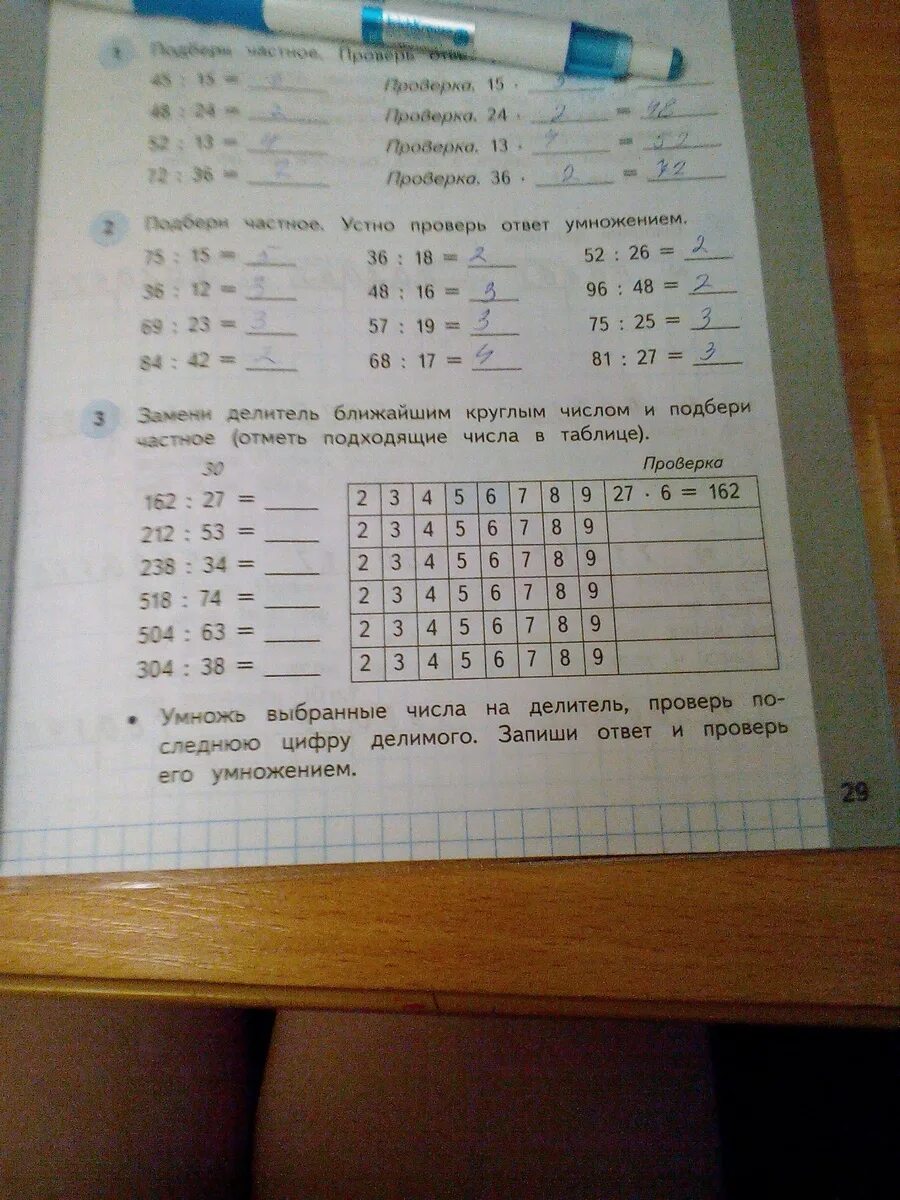 1 Подбери частное. Проверь
45 : 15 = Проверка. 15 ·
48 : 24 = 2 Проверка. 24 · 2 = 48
52 : 13 = 4 Проверка. 13 · = 52
72 : 36 = 2 Проверка. 36 · 2 = 72
2 Подбери частное. Устно проверь ответ умножением.
75 : 15 = 5 36 : 18 = 2 52 : 26 = 2
36 : 12 = 3 48 : 16 = 3 96 : 48 = 2
69 : 23 = 3 57 : 19 = 3 75 : 25 = 3
84 : 42 = 2 68 : 17 = 4 81 : 27 = 3
3 Замени делитель ближайшим круглым числом и подбери
частное (отметь подходящие числа в таблице).
30 Проверка
162 : 27 = 2 3 4 5 6 7 8 9 27 · 6 = 162
212 : 53 = 2 3 4 5 6 7 8 9
238 : 34 = 2 3 4 5 6 7 8 9
518 : 74 = 2 3 4 5 6 7 8 9
504 : 63 = 2 3 4 5 6 7 8 9
304 : 38 = 2 3 4 5 6 7 8 9
• Умножь выбранные числа на делитель, проверь по-
следнюю цифру делимого. Запиши ответ и проверь
его умножением.
29